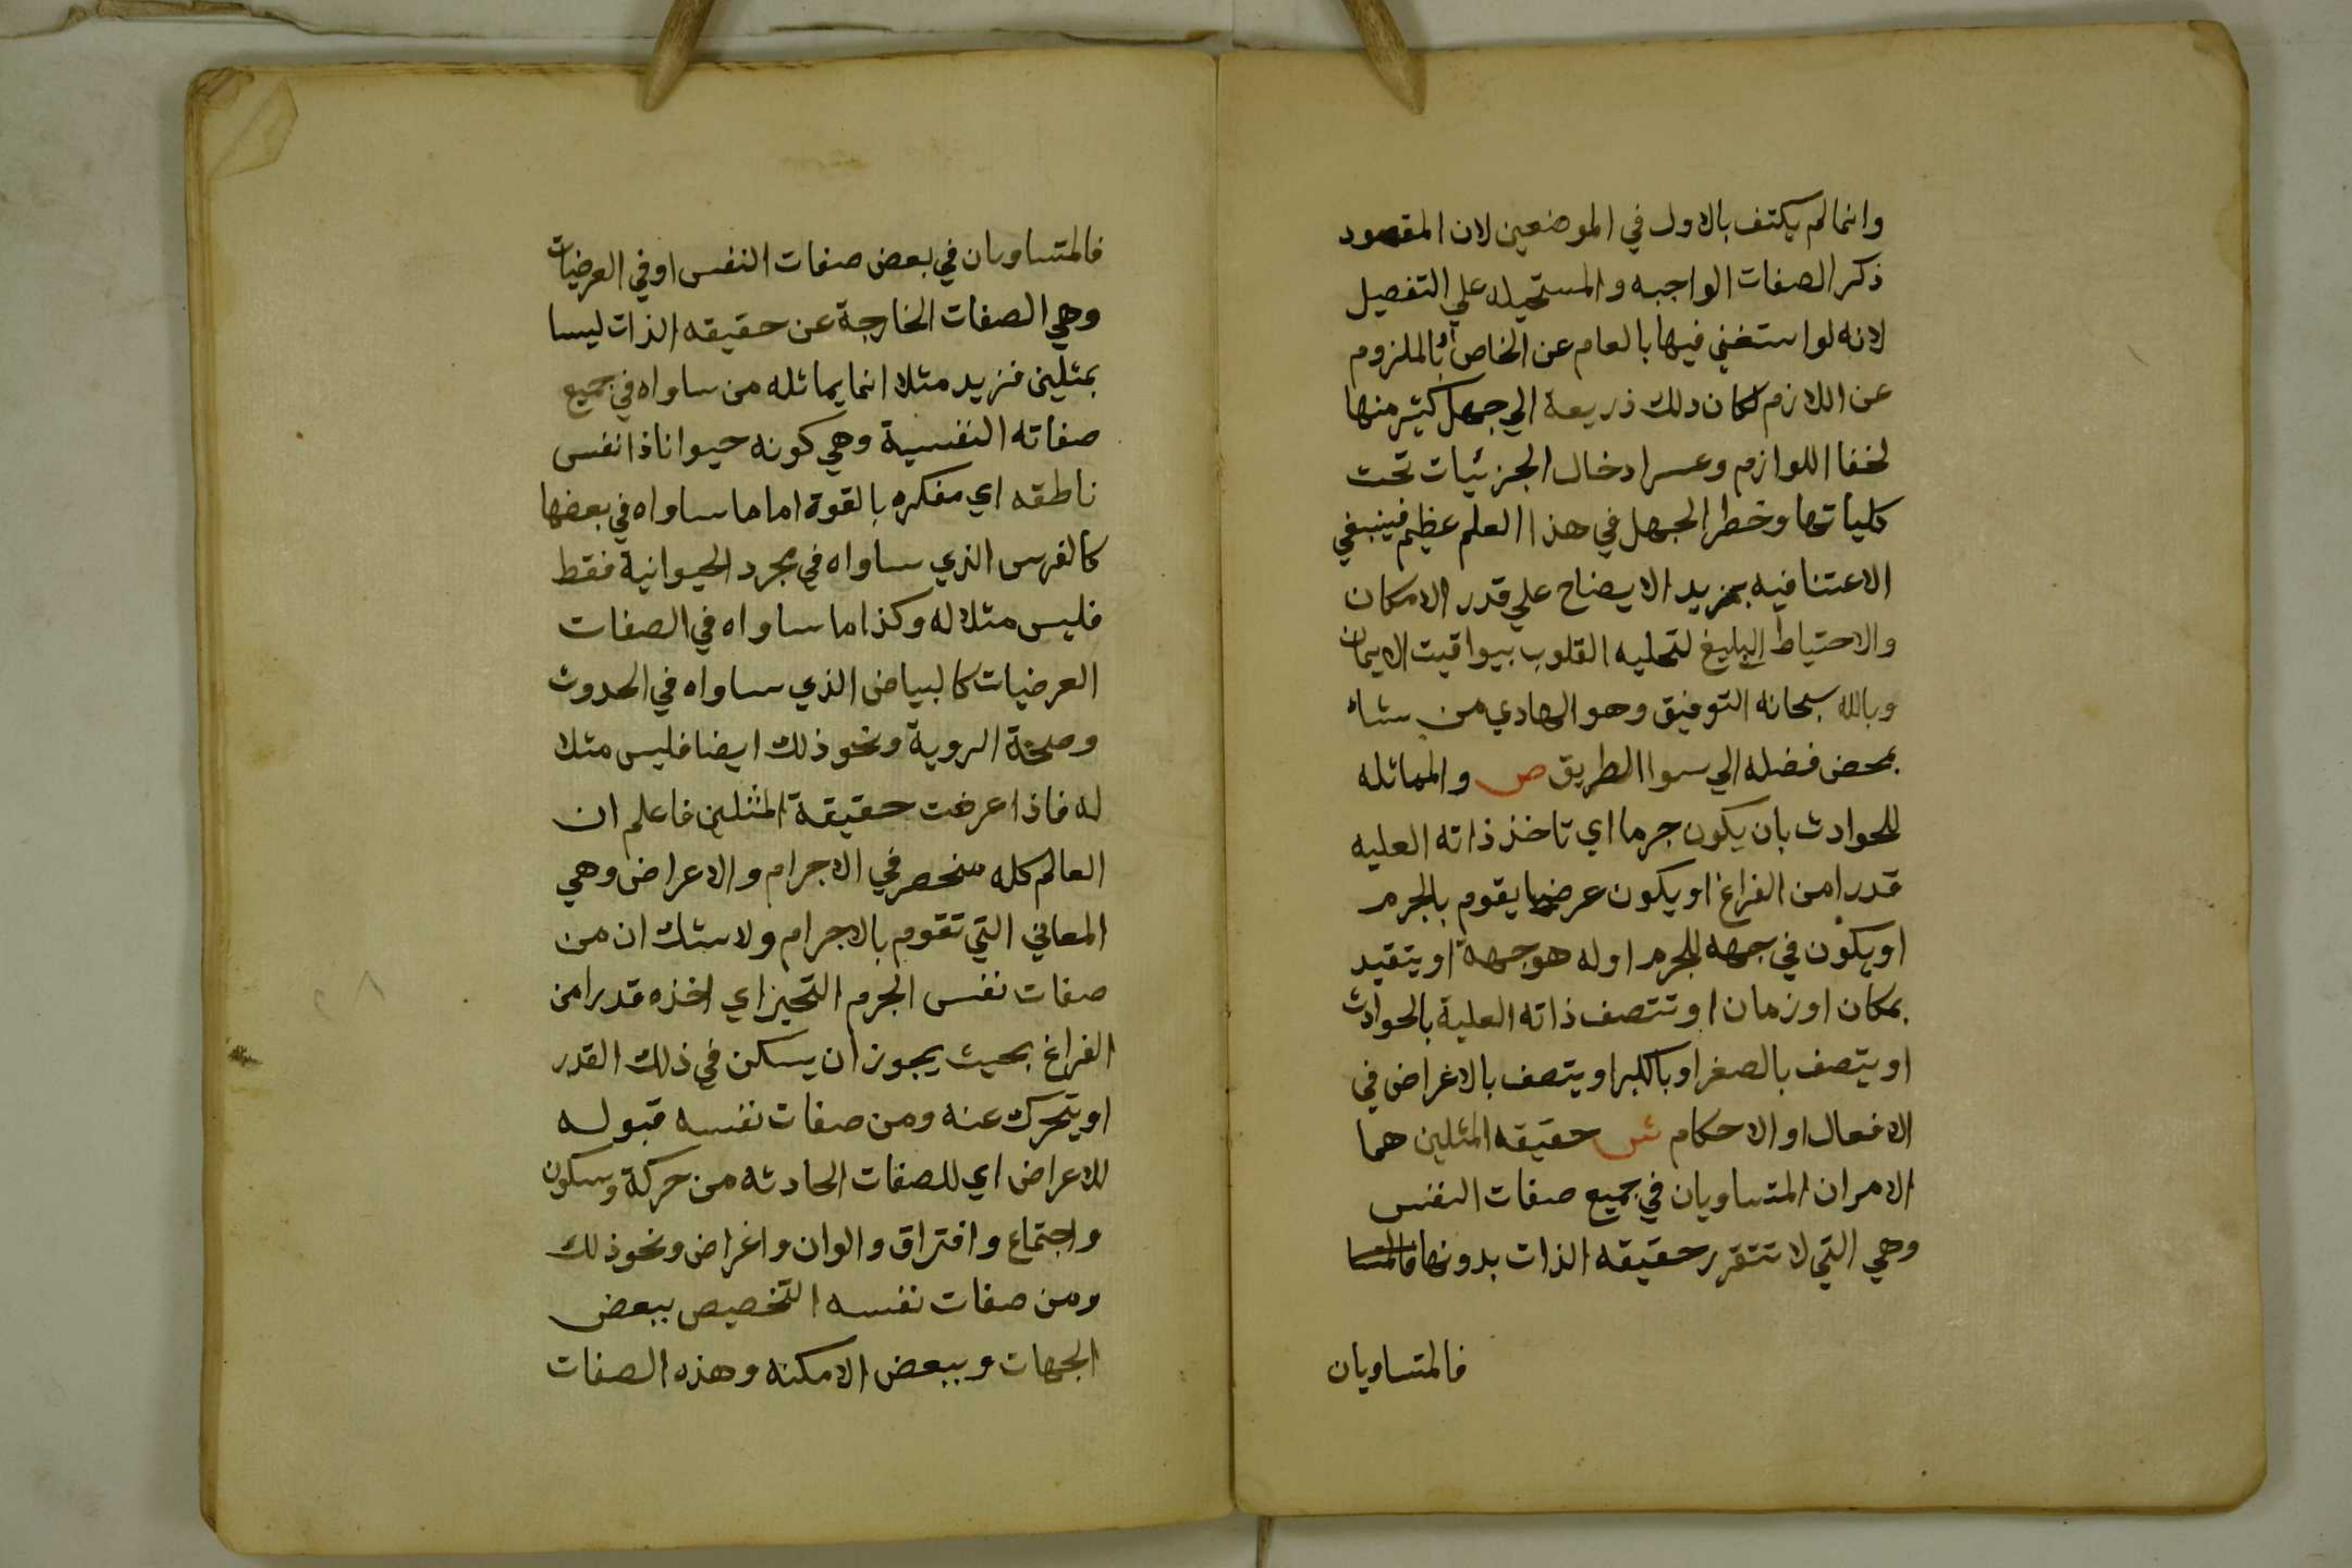 وانما لم يكتف بالاول في الموضعين لان المقصود
ذكر الصفات الواجبه والمستحيله علي التفصيل
لانه لو استغني فيها بالعام عن الخاص او بالملزوم
عن اللازم لكان ذلك ذريعة الي جهل كثير منها
لخفا اللوازم وعسر ادخال الجزئيات تحت
كلياتها وخطر الجهل في هذا العلم عظيم فينبغي
الاعتنا فيه بمزيد الايضاح علي قدر الامكان
والاحتياط البليغ لتحليه القلوب بيواقيت الايمان
وبالله سبحانه التوفيق وهو الهادي من يشاء
بمحض فضله الي سوا الطريق ص والمماثله
للحوادث بان يكون جرما اي تاخذ ذاته العليه
قدرا من الفراغ او يكون عرضا يقوم بالجرم
او يكون في جهه للجرم او له هو جهة او يتقيد
بمكان او زمان او تتصف ذاته العلية بالحوادث
او يتصف بالصغر او بالكبر او يتصف بالاغراض في
الافعال او الاحكام ش حقيقه المثلين هما
الامران المتساويان في جميع صفات النفس
وهي التي لا تتقرر حقيقه الذات بدونها فالمتسا
فالمتساويان
فالمتساويان في بعض صفات النفس او في العرضيات
وهي الصفات الخارجة عن حقيقه الذات ليسا
بمثلين فزيد مثلا انما يماثله من ساواه في جميع
صفاته النفسية وهي كونه حيوانا ذا نفس
ناطقه اي مفكره بالقوة اما ما ساواه في بعضها
كالفرس الذي ساواه في مجرد الحيوانية فقط
فليس مثلا له وكذا ما ساواه في الصفات
العرضيات كالبياض الذي ساواه في الحدوث
وصحة الروية ونحو ذلك ايضا فليس مثلا
له فاذا عرفت حقيقة المثلين فاعلم ان
العالم كله منحصر في الاجرام والاعراض وهي
المعاني التي تقوم بالاجرام ولا شك ان من
صفات نفس الجرم التحيز اي اخذه قدرا من
الفراغ بحيث يجوز ان يسكن في ذلك القدر
او يتحرك عنه ومن صفات نفسه قبوله
للاعراض اي للصفات الحادثه من حركة وسكون
واجتماع وافتراق والوان واغراض ونحو ذلك
ومن صفات نفسه التخصيص ببعض
الجهات وببعض الامكنه وهذه الصفات